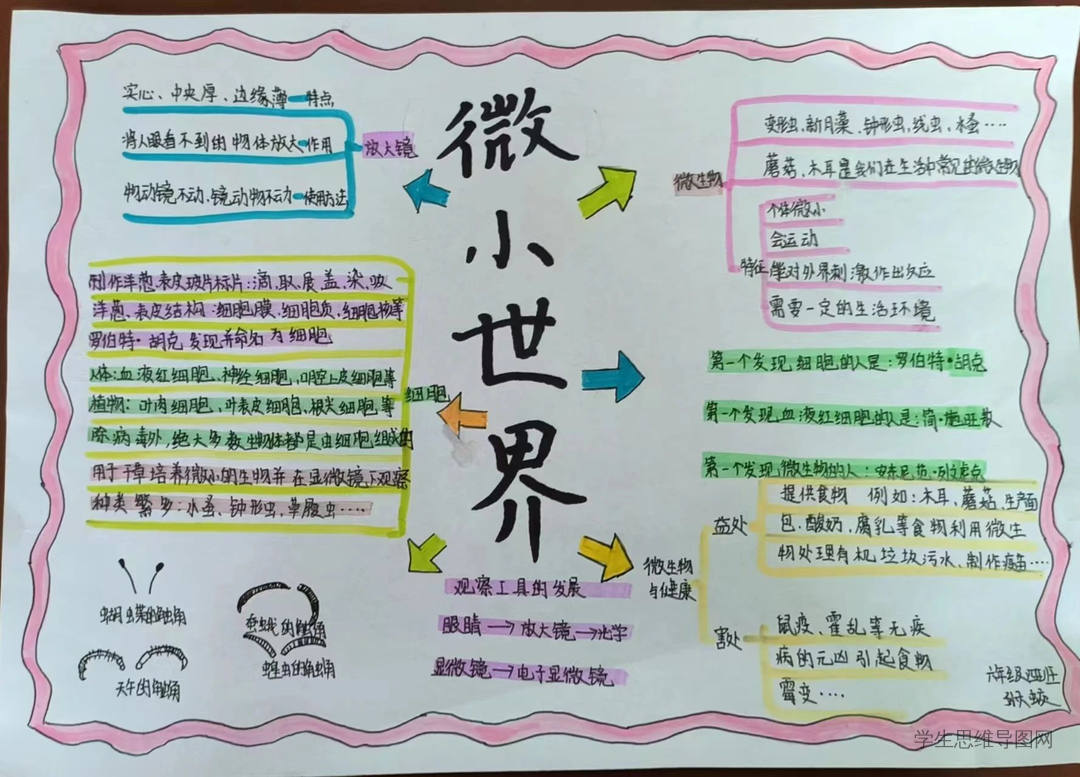 微小世界
实心、中央厚、边缘薄 特点
将人眼看不到的物体放大 作用
物动镜不动、镜动物不动 使用方法
放大镜
制作洋葱表皮玻片标片:滴、取、展、盖、染、吸
洋葱、表皮结构:细胞膜、细胞质、细胞核等
罗伯特·胡克发现并命名为细胞
人体:血液红细胞、神经细胞、口腔上皮细胞等
植物:叶肉细胞,叶表皮细胞、根尖细胞等
除病毒外,绝大多数生物体都是由细胞组成的
用干草培养微小的生物并在显微镜下观察
种类繁多:小蚤、钟形虫、草履虫……
细胞
微生物
变形虫、新月藻、钟形虫,线虫、水蚤……
蘑菇、木耳是我们在生活中常见的微生物
特征
个体微小
会运动
能对外界刺激作出反应
需要一定的生活环境
第一个发现细胞的人是:罗伯特·胡克
第一个发现血液红细胞的人是:简·施旺麦
第一个发现微生物的人:安东尼·范·列文虎克
微生物
与健康
益处
提供食物 例如:木耳、蘑菇、生产面
包、酸奶,腐乳等食物利用微生
物处理有机垃圾污水、制作疫苗……
害处
鼠疫、霍乱等无疾
病的元凶引起食物
霉变……
观察工具的发展
眼睛→放大镜→光学
显微镜→电子显微镜
蝴蝶的触角
蚕蛾的触角
天牛的触角
蝗虫的触角
六年级四班
学生思维导图网